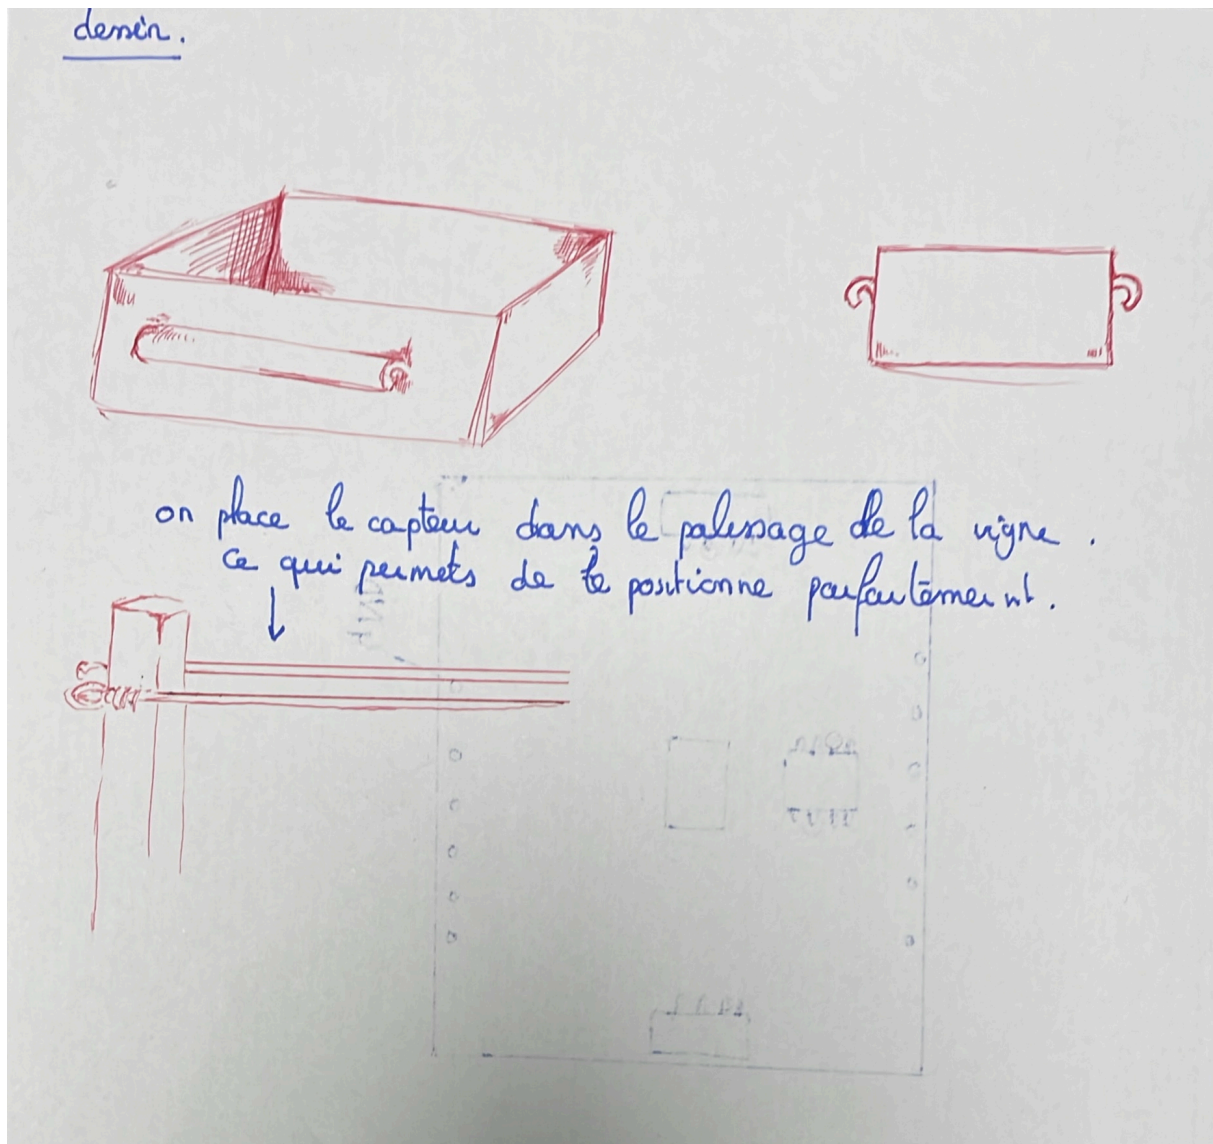 dessin.
on place le capteur dans le palissage de la vigne.
ce qui permets de le positionne parfaitement.